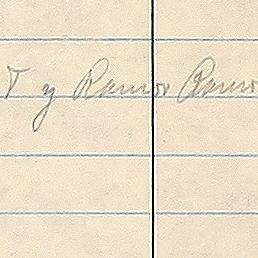 T y Ramos Ramos